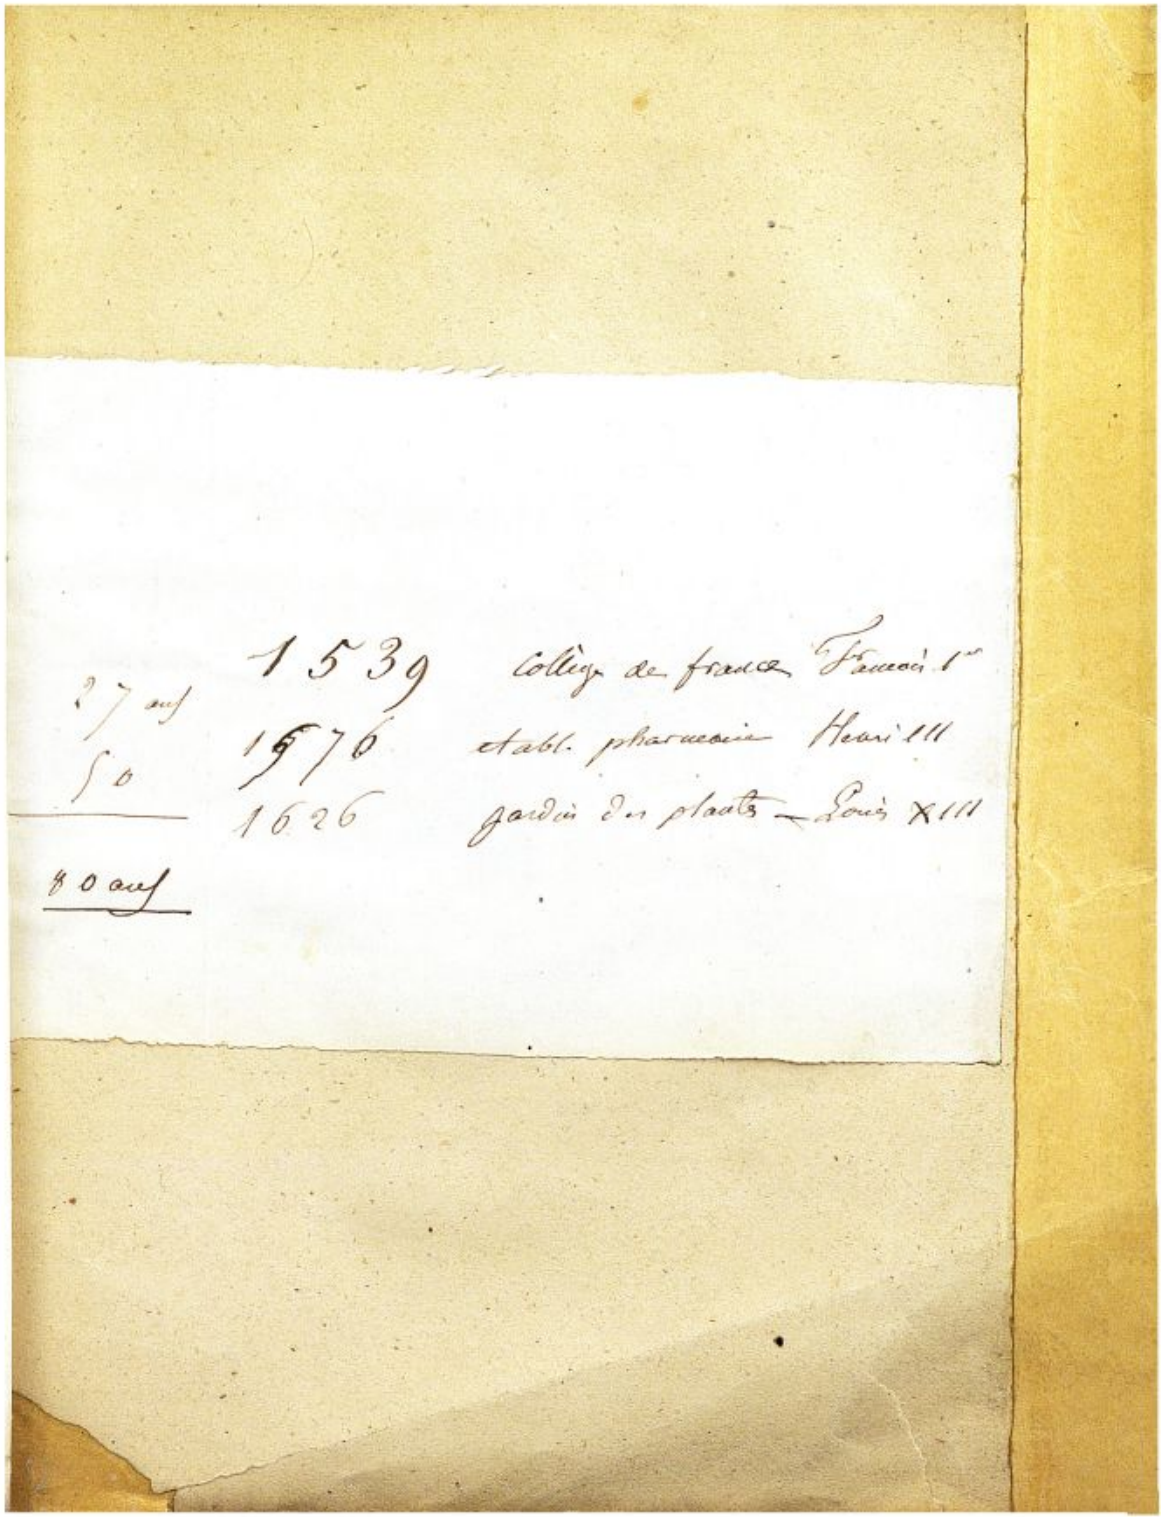 1539 collège de france François 1er
27 ans
1576 etabl. pharmacie Henri III
50
1626 jardin des plantes – Louis XIII
80 ans